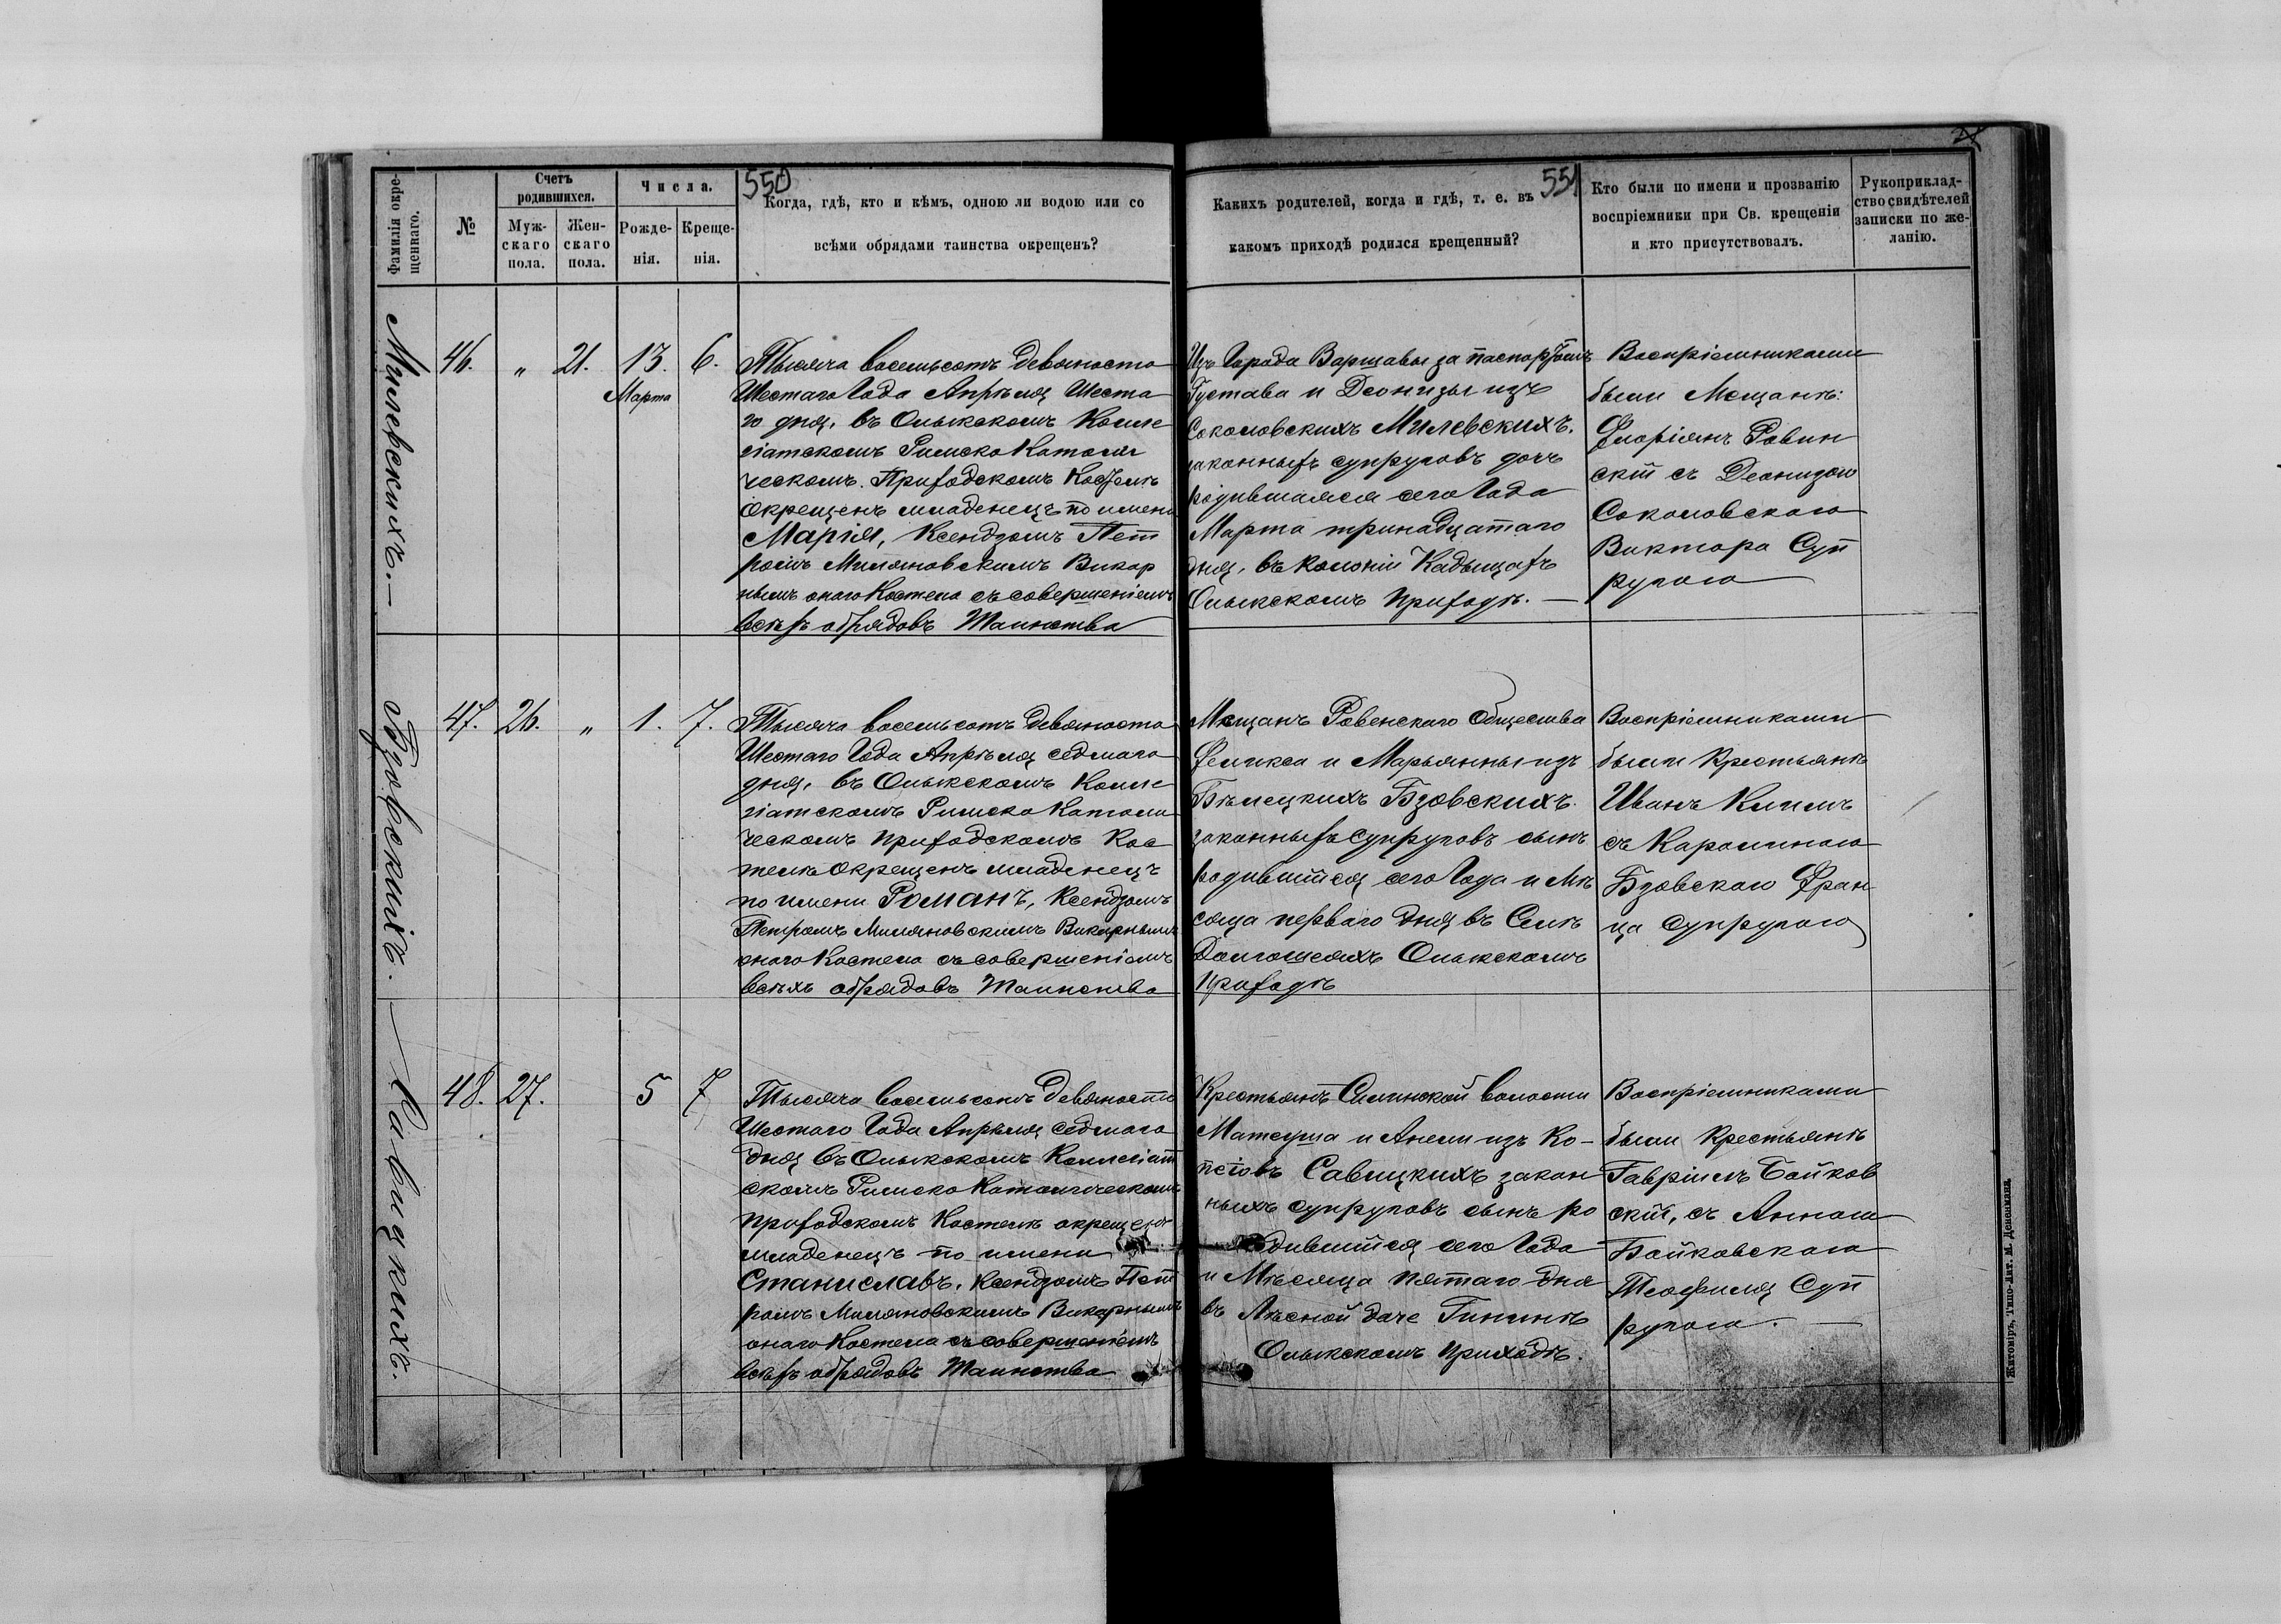 550
551
Фамилія окре-
щеннаго.
№
Счетъ
родившихся.
Муж-
скаго
пола.
Жен-
скаго
пола.
Числа.
Рожде-
нія.
Креще-
нія.
Когда, гдѣ, кто и кѣмъ, одною ли водою или со
всѣми обрядами таинства окрещенъ?
Какихъ родителей, когда и гдѣ, т. е. въ
какомъ приходѣ родился крещенный?
Кто были по имени и прозванію
воспріемники при Св. крещеніи
и кто присутствовалъ.
Рукоприклад-
ство свидѣтелей
записки по же-
ланію.
Милевскихъ.—
46. " 21. 13. 6.
Марта
Тысяча восемьсотъ девяносто
Шестаго Года Апрѣля Шеста
го дня, въ Олыкскомъ Колле
гіатскомъ Римско Католи
ческомъ Приходскомъ Костелѣ
окрещенъ младенецъ по имени
Марія, Ксендзомъ Пет
ромъ Миляновскимъ Викар
нымъ онаго Костела съ совершеніемъ
всѣхъ обрядовъ Таинства
Изъ Города Варшавы за паспортомъ
Густава и Деонизы изъ
Соколовскихъ Милевскихъ.
законныхъ супруговъ дочь
родившаяся сего Года
Марта тринадцатаго
дня, въ Колоніи Кадыщахъ
Олыкскомъ приходѣ. —
Воспріемниками
были Мещанѣ:
Флоріянъ Ровин
скій съ Деонизою
Соколовскою
Виктора Суп
ругою
Бзовскихъ.
47. 26. " 1. 7.
Тысяча восемьсотъ девяносто
Шестаго Года Апрѣля седмаго
дня, въ Олыкскомъ Колле
гіатскомъ Римско Католи
ческомъ приходскомъ Кос
телѣ окрещенъ младенецъ
по имени Романъ, Ксендзомъ
Петромъ Миляновскимъ Викарнымъ
онаго Костела съ совершеніемъ
всѣхъ обрядовъ Таинства
Мещанъ Ровенскаго Общества
Феликса и Марьянны изъ
Бѣлецкихъ Бзовскихъ.
законныхъ супруговъ сынъ
родившійся сего Года и Мѣ
сяца перваго дня въ Селѣ
Долгошеяхъ Олыкскомъ
приходѣ
Воспріемниками
были Крестьянѣ
Иванъ Климъ
съ Каролиною
Бзовскою Фран-
ца супругою
Савицкихъ.
48. 27. 5 7
Тысяча восемьсотъ девяносто
Шестаго Года Апрѣля седмаго
дня въ Олыкскомъ Коллегіат
скомъ Римско Католическомъ
приходскомъ Костелѣ окрещенъ
младенецъ по имени
Станиславъ, Ксендзомъ Пет
ромъ Миляновскимъ Викарнымъ
онаго Костела съ совершеніемъ
всѣхъ обрядовъ Таинства
Крестьянъ Силинской волости
Матеуша и Анели изъ Ко-
песовъ Савицкихъ закон
ныхъ супруговъ сынъ ро
дившійся сего Года
и Мѣсяца пятаго дня
въ Лѣсной даче
Олыкскомъ приходѣ.
Воспріемниками
были Крестьянѣ
Гавріилъ Байков
скій, съ Анною
Байковскою
Теофиля Суп
ругою. —
Житоміръ, Типо-Лит. М. Дененмана.